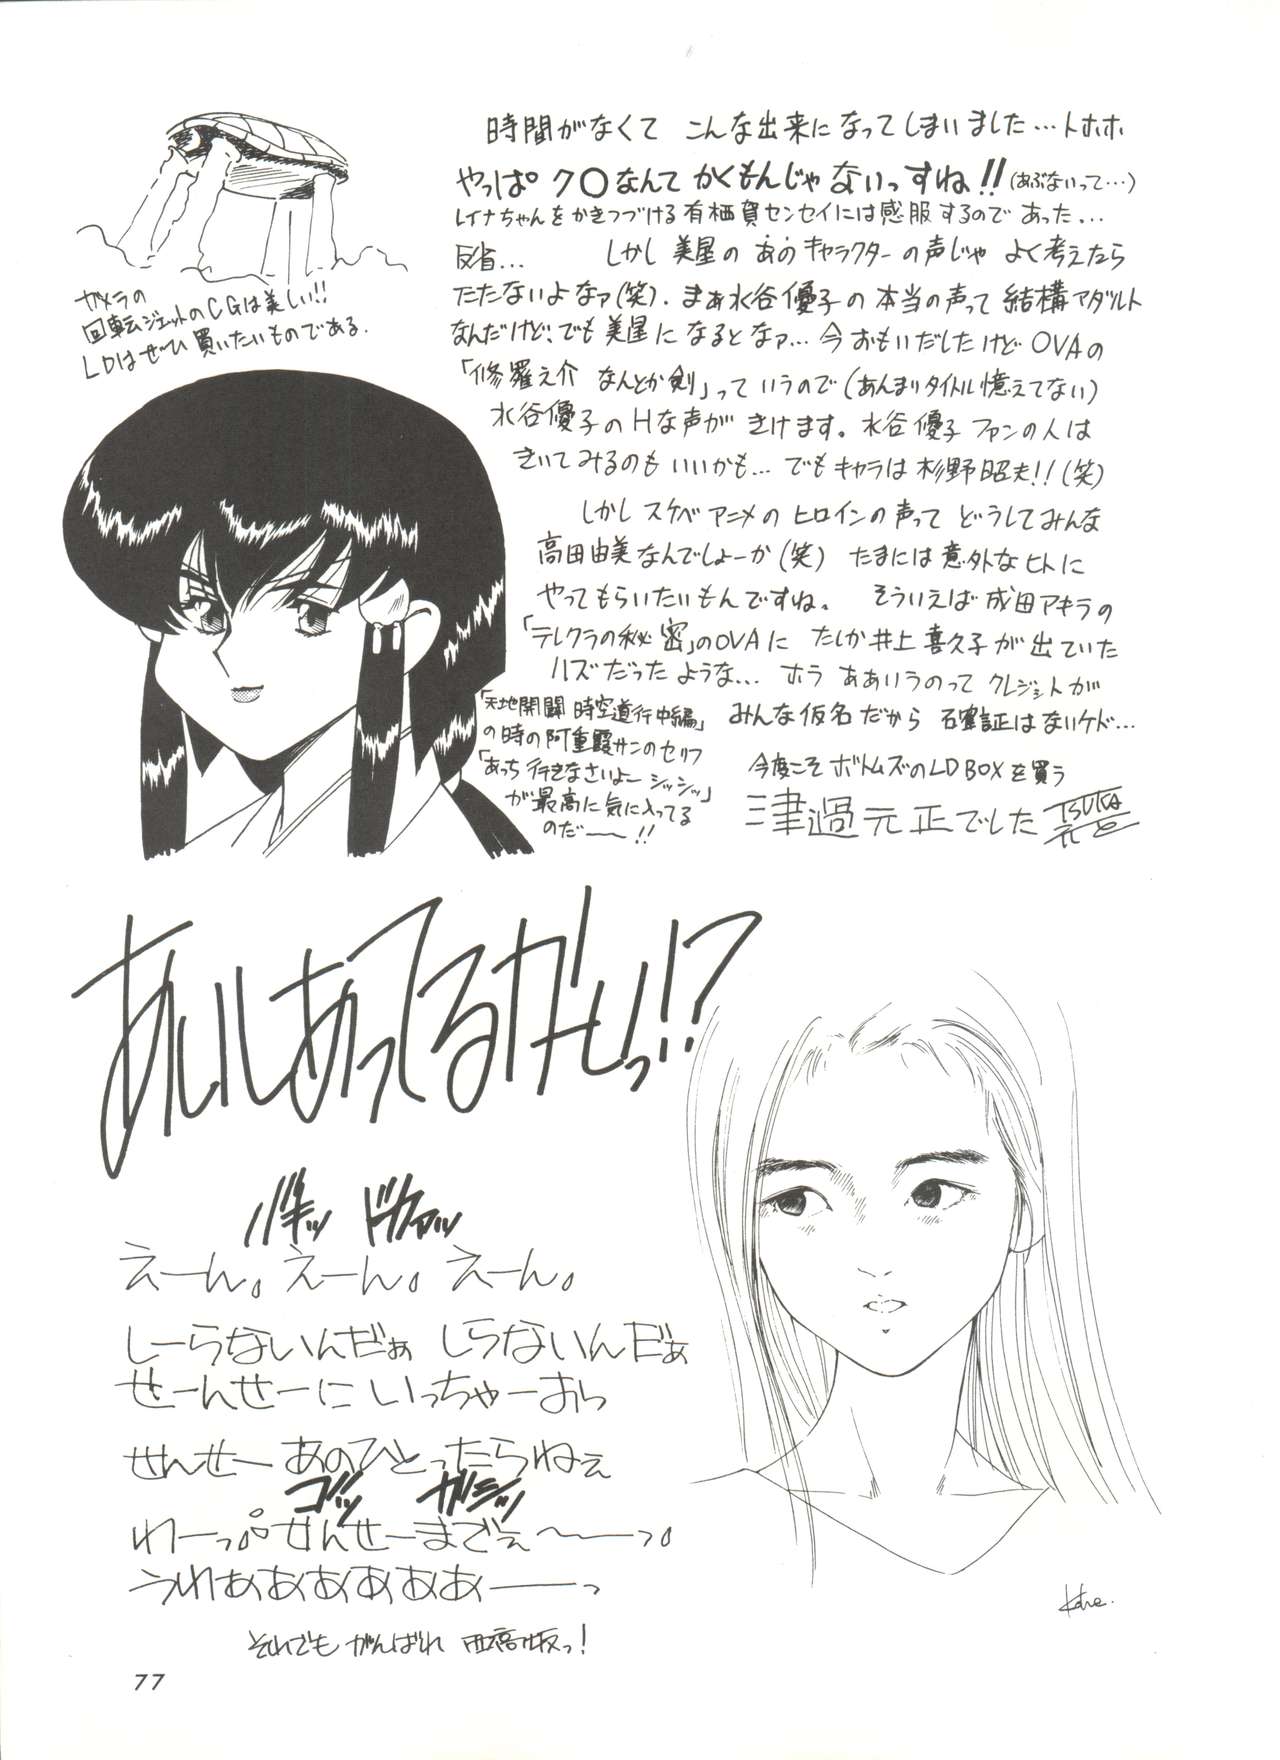 時間がなくて こんな出来になってしまいました…トホホ
やっぱ ク〇なんて かくもんじゃ ないっすね!!(あぶないって…)
レイナちゃんをかきつづける有栖賀センセイには感服するのであった…
反省… しかし美星の あのキャラクターの声じゃ よく考えたら
たたないよなァ(笑). まぁ水谷優子の本当の声って結構アダルト
なんだけど、でも美星になるとなァ…今おもいだしたけどOVAの
「修羅之介 なんとか剣」っていうので(あんまりタイトル憶えてない)
水谷優子のHな声が きけます。水谷優子ファンの人は
きいてみるのもいいかも… でもキャラは杉野昭夫!!(笑)
しかしスケベアニメのヒロインの声って どうしてみんな
高田由美なんでしょーか(笑) たまには意外なヒトに
やってもらいたいもんですね。 そういえば成田アキラの
「テレクラの秘密」のOVAに たしか井上喜久子が出ていた
ハズだったような… ホラ ああいうのって クレジットが
みんな仮名だから 確証はないケド…
今度こそ ボトムズのLD BOXを買う
津過元正でした
ガメラの
回転ジェットのCGは美しい!!
LDはぜひ買いたいものである.
「天地開闢 時空道行中編」
の時の阿重霞サンのセリフ
「あっち行きなさいよー シッシッ」
が最高に気に入ってる
のだ——!!
バキッ ドカァッ
えーん。えーん。えーん。
しーらないんだぁ しらないんだぁ
せーんせーに いっちゃーおら
せんせー あのひとったらねぇ
ゴッ ガシッ
わーっ。せんせーまでぇ〜——っ。
うわああああああ——っ
それでも がんばれ 西高坂っ!
77